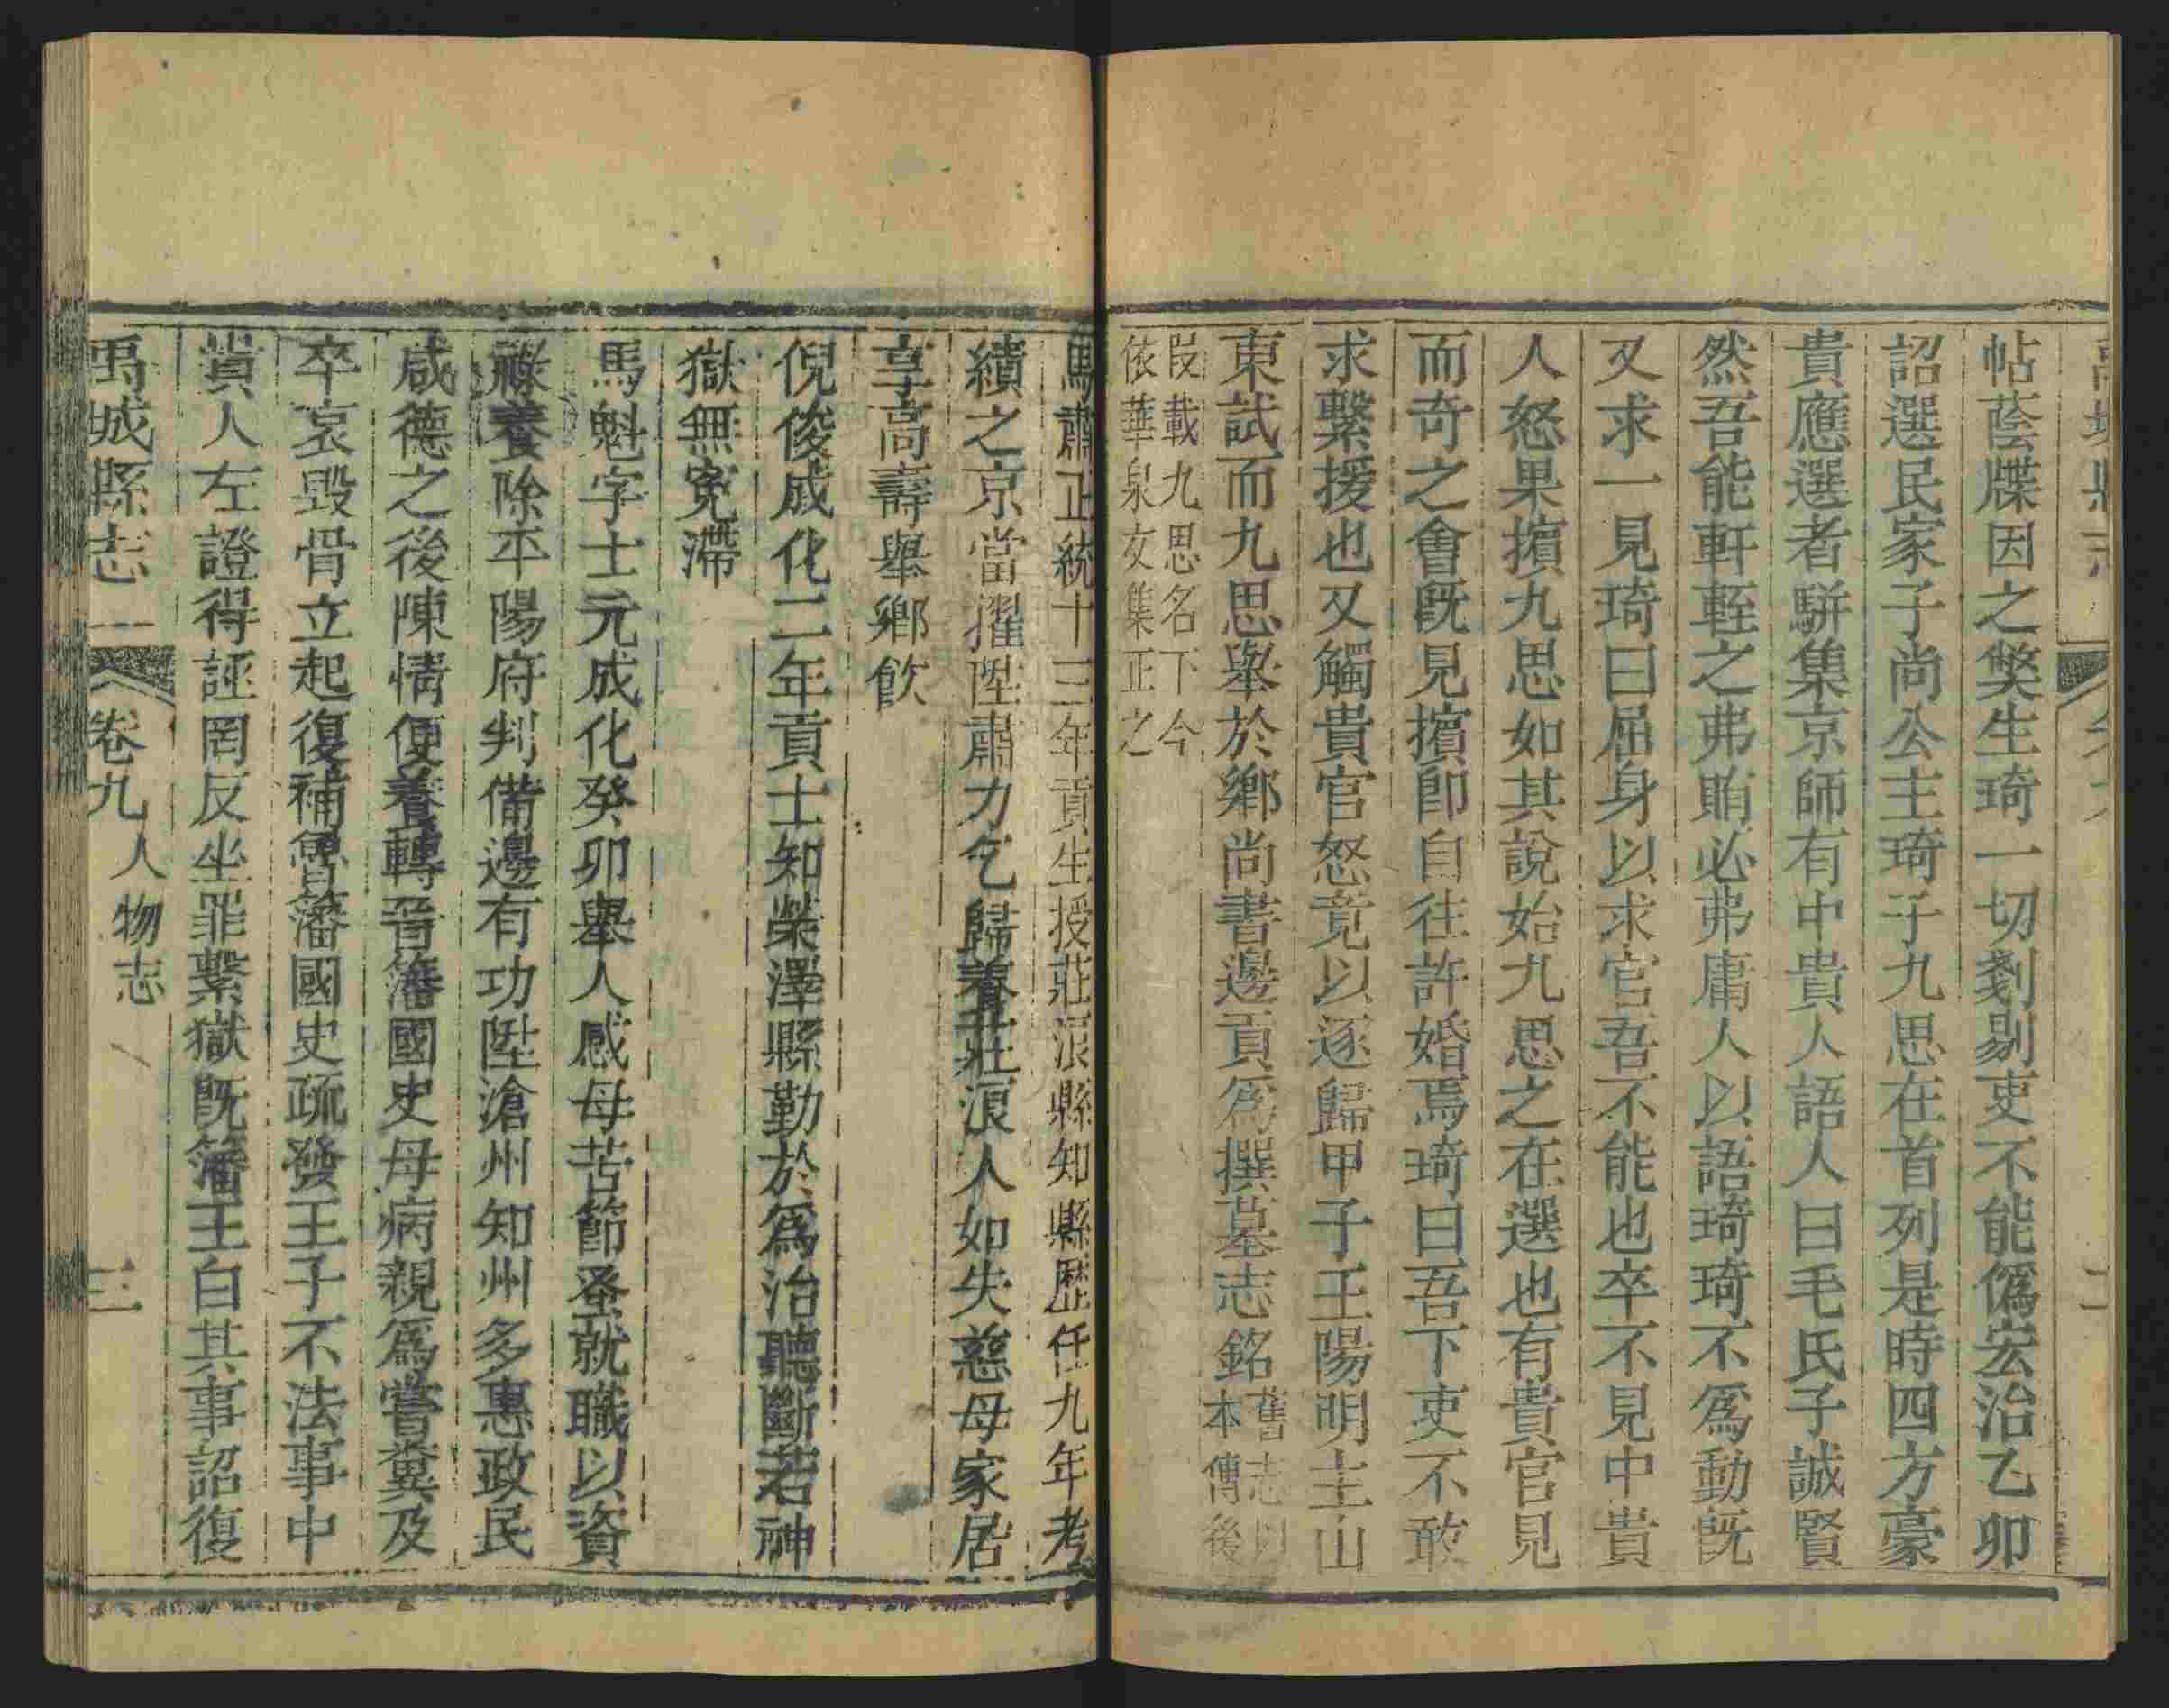 帖蔭牒因之獘生琦一切剗剔吏不能僞宏治乙卯
詔選民家子尚公主琦子九思在首列是時四方豪
貴應選者駢集京師有中貴人語人曰毛氏子誠賢
然吾能軒輊之弗賄必弗庸人以語琦琦不爲動旣
又求一見琦曰屈身以求官吾不能也卒不見中貴
人怒果擯九思如其說始九思之在選也有貴官見
而奇之會旣見擯卽自往許婚焉琦曰吾下吏不敢
求繫援也又觸貴官怒竟以逐歸甲子王陽明主山
東試而九思舉於鄉尚書邊貢爲撰墓志銘舊志以本傳後
段載九思名下今
依華泉文集正之
馬肅正統十三年貢生授莊浪縣知縣歷任九年考
績之京當擢陞肅力乞歸養莊浪人如失慈母家居
享高壽舉鄉飲
倪俊成化二年貢士知榮澤縣勤於爲治聽斷若神
獄無寃滯
馬魁字士元成化癸卯舉人感母苦節蚤就職以資
祿養除平陽府判備邊有功陞滄州知州多惠政民
咸德之後陳情便養轉晉籓國史母病親爲嘗糞及
卒哀毀骨立起復補魯籓國史疏發王子不法事中
貴人左證得誣罔反坐罪繫獄旣籓王白其事詔復
禹城縣志
卷九
人物志
三